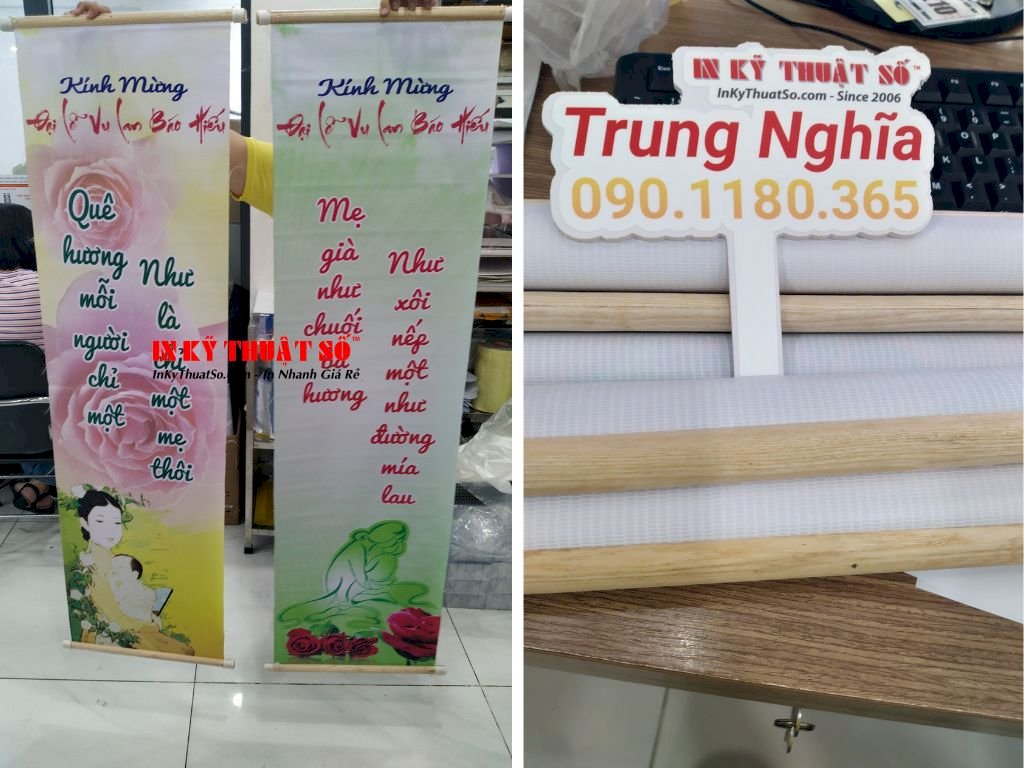 Kính Mừng
Đại Lễ Vu Lan Báo Hiếu
Quê
hương
mỗi
người
chỉ
một
Như
là
chỉ
một
mẹ
thôi
Kính Mừng
Đại Lễ Vu Lan Báo Hiếu
Mẹ
già
như
chuối
bà
hương
Như
xôi
nếp
một
như
đường
mía
lau
IN KỸ THUẬT SỐ™
InKyThuatSo.com - In Nhanh Giá Rẻ
IN KỸ THUẬT SỐ™
InKyThuatSo.com - Since 2006
Trung Nghĩa
090.1180.365